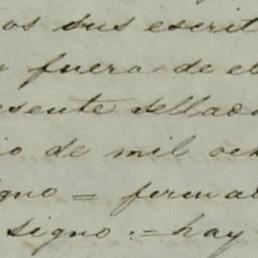 os sus escrit
fuera de el
esente sellado
io de mil och
igno = firmad
signo : = hay